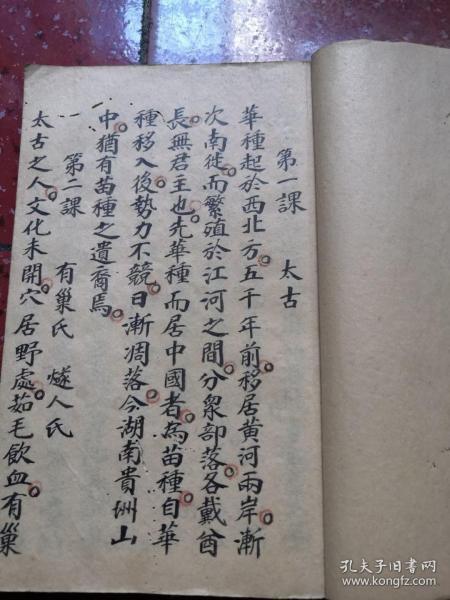 第一課 太古
華種起於西北方五千年前移居黃河兩岸漸
次南徙而繁殖於江河之間分衆部落各戴酋
長無君主也先華種而居中國者為苗種自華
種移入後勢力不競日漸凋落今湖南貴州山
中猶有苗種之遺裔焉
第二課 有巢氏 燧人氏
太古之人文化未開穴居野處茹毛飲血有巢
孔夫子旧书网
www.kongfz.com